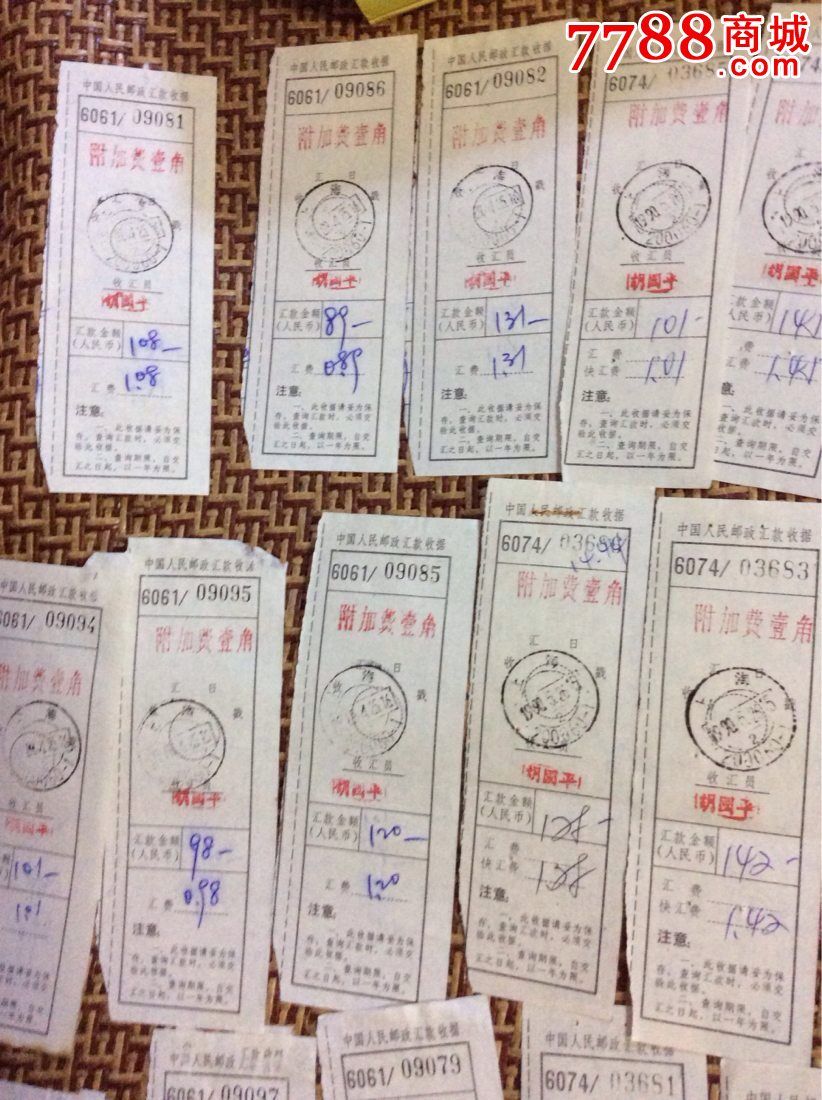 7788商城
.com
中国人民邮政汇款收据
6061/ 09081
附加费壹角
收汇员
胡国平
汇款金额
(人民币)
108-
汇费
1.08
注意:
一、此收据请妥为保
存，查询汇款时，必须交
验此收据。
二、查询期限，自交
汇之日起，以一年为限。
中国人民邮政汇款收据
6061/ 09086
附加费壹角
汇 日
收 戳
收汇员
胡国平
汇款金额
(人民币)
89-
汇费
0.89
注意:
一、此收据请妥为保
存，查询汇款时，必须交
验此收据。
二、查询期限，自交
汇之日起，以一年为限。
中国人民邮政汇款收据
6061/ 09082
附加费壹角
汇 日
收 戳
收汇员
胡国平
汇款金额
(人民币)
131-
汇费
1.31
注意:
一、此收据请妥为保
存，查询汇款时，必须交
验此收据。
二、查询期限，自交
汇之日起，以一年为限。
中国人民邮政汇款收据
6074/ 03685
附加费壹角
收汇员
胡国平
汇款金额
(人民币)
101-
汇费
快汇费
1.01
注意:
一、此收据请妥为保
存，查询汇款时，必须交
验此收据。
二、查询期限，自交
汇之日起，以一年为限。
胡国平
汇款金额
(人民币)
141
汇费
快汇费
1.41
注意:
中国人民邮政汇款收据
6061/ 09094
附加费壹角
收汇员
胡国平
101-
1.01
中国人民邮政汇款收据
6061/ 09095
附加费壹角
汇 日
收 戳
收汇员
胡国平
汇款金额
(人民币)
98-
汇费
0.98
注意:
一、此收据请妥为保
存，查询汇款时，必须交
验此收据。
二、查询期限，自交
汇之日起，以一年为限。
中国人民邮政汇款收据
6061/ 09085
附加费壹角
汇 日
收 戳
收汇员
胡国平
汇款金额
(人民币)
120-
汇费
1.20
注意:
一、此收据请妥为保
存，查询汇款时，必须交
验此收据。
二、查询期限，自交
汇之日起，以一年为限。
中国人民邮政汇款收据
6074/
附加费壹角
汇 日
收汇员
胡国平
汇款金额
(人民币)
128-
汇费
快汇费
1.28
注意:
一、此收据请妥为保
存，查询汇款时，必须交
验此收据。
二、查询期限，自交
汇之日起，以一年为限。
中国人民邮政汇款收据
6074/ 03683
附加费壹角
收汇员
胡国平
汇款金额
(人民币)
142-
汇费
快汇费
1.42
注意:
一、此收据请妥为保
存，查询汇款时，必须交
验此收据。
二、查询期限，自交
汇之日起，以一年为限。
中国人民邮政汇款收据
6061/ 09097
中国人民邮政汇款收据
6061/ 09079
中国人民邮政汇款收据
6074/ 03681